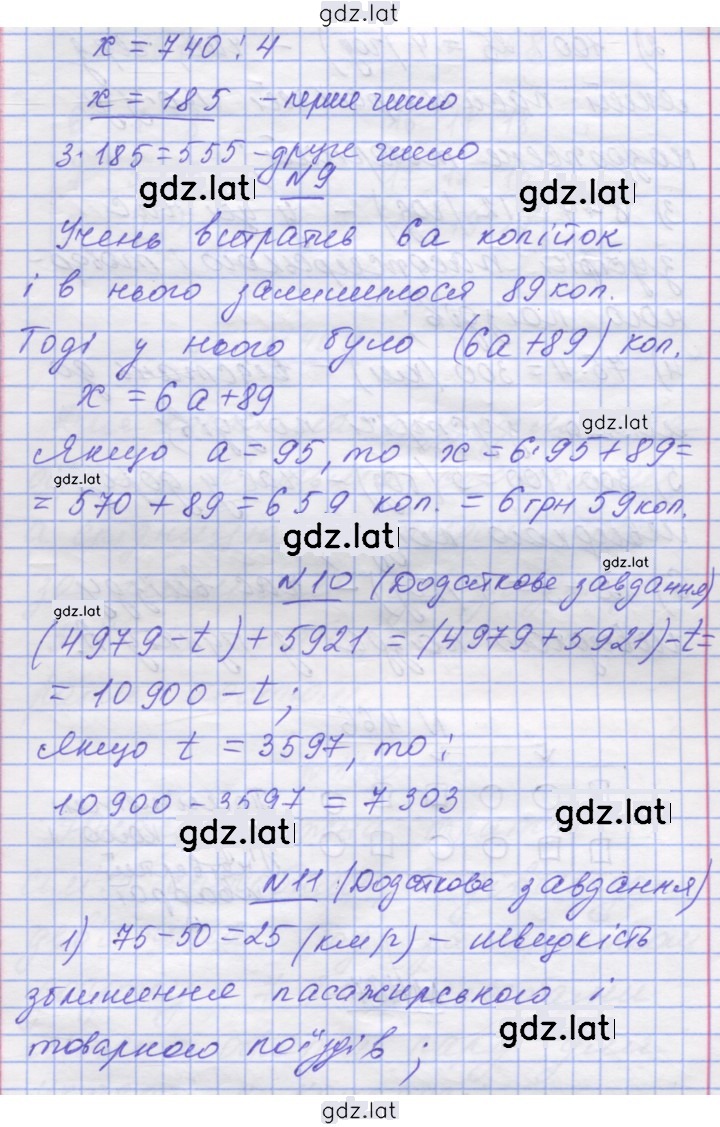 gdz.lat
x = 740 : 4
x = 185 - перше число
3·185=555 - друге число
gdz.lat
№9
gdz.lat
Учень витратив 6а копійок
і в нього залишилося 89 коп.
Тоді у нього було (6а+89) коп.
x = 6а+89
gdz.lat
Якщо а = 95, то x = 6·95+89=
gdz.lat
= 570 + 89 = 659 коп. = 6 грн 59 коп.
gdz.lat
gdz.lat
№10 (Додаткове завдання)
gdz.lat
(4979-t)+5921 = (4979+5921)-t=
= 10 900 - t;
Якщо t = 3597, то:
10 900 - 3597 = 7 303
gdz.lat
gdz.lat
№11 (Додаткове завдання)
1) 75-50=25 (км/г) - швидкість
зближення пасажирського і
gdz.lat
товарного поїздів;
gdz.lat